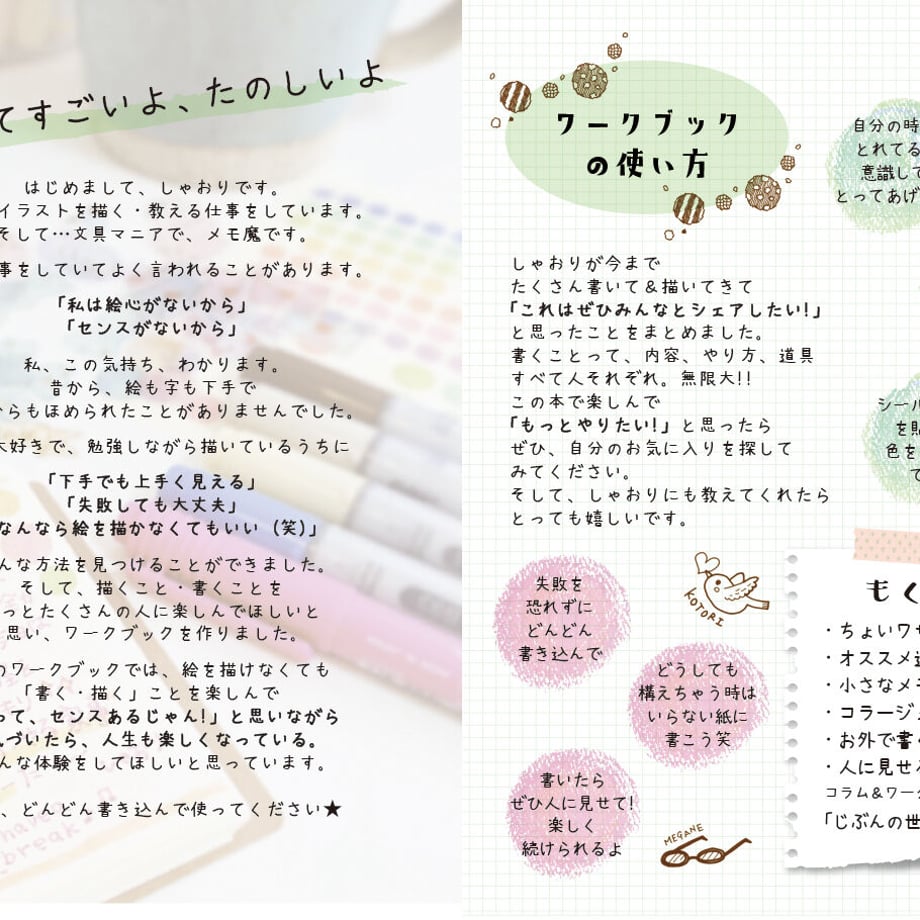 てすごいよ、たのしいよ
はじめまして、しゃおりです。
イラストを描く・教える仕事をしています。
そして…文具マニアで、メモ魔です。
事をしていてよく言われることがあります。
「私は絵心がないから」
「センスがないから」
私、この気持ち、わかります。
昔から、絵も字も下手で
からもほめられたことがありませんでした。
大好きで、勉強しながら描いているうちに
「下手でも上手く見える」
「失敗しても大丈夫」
なんなら絵を描かなくてもいい（笑）」
んな方法を見つけることができました。
そして、描くこと・書くことを
っとたくさんの人に楽しんでほしいと
思い、ワークブックを作りました。
のワークブックでは、絵を描けなくても
「書く・描く」ことを楽しんで
って、センスあるじゃん！」と思いながら
づいたら、人生も楽しくなっている。
んな体験をしてほしいと思っています。
、どんどん書き込んで使ってください★
ワークブック
の使い方
しゃおりが今まで
たくさん書いて＆描いてきて
「これはぜひみんなとシェアしたい！」
と思ったことをまとめました。
書くことって、内容、やり方、道具
すべて人それぞれ。無限大！！
この本で楽しんで
「もっとやりたい！」と思ったら
ぜひ、自分のお気に入りを探して
みてください。
そして、しゃおりにも教えてくれたら
とっても嬉しいです。
失敗を
恐れずに
どんどん
書き込んで
KOTORI
どうしても
構えちゃう時は
いらない紙に
書こう笑
書いたら
ぜひ人に見せて！
楽しく
続けられるよ
MEGANE
自分の時
とれてる
意識して
とってあげ
シール
を貼
色を
で
もく
・ちょいワザ
・オススメ
・小さなメモ
・コラージュ
・お外で書く
・人に見せ
コラム＆ワーク
「じぶんの世